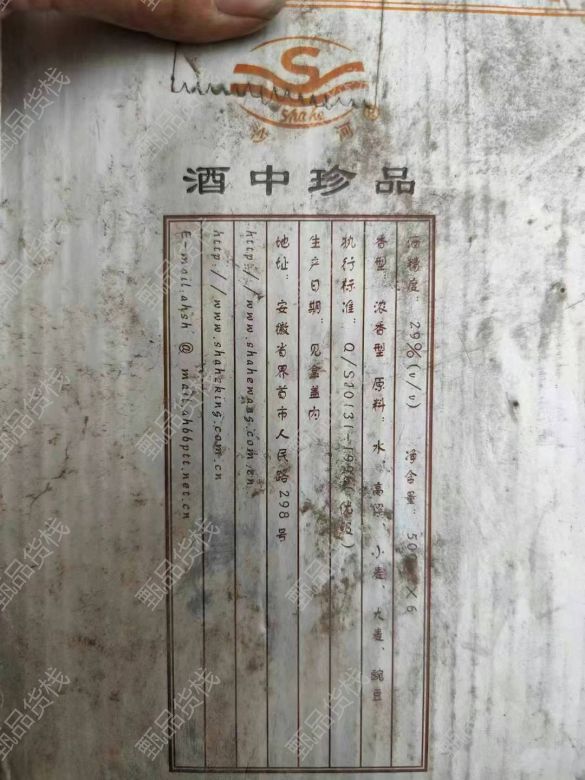 S
Shahe
沙河
®
酒中珍品
酒精度：29%(v/v) 净含量：
香型：浓香型 原料：水、高粱、小麦、大麦、豌豆
执行标准：
生产日期：见盒盖内
地址：安徽省界首市人民路298号
http://www.shahewang.com.cn
http://www.shaheking.com.cn
E-mail:ahsh@mail.hbbptt.net.cn
甄品货栈